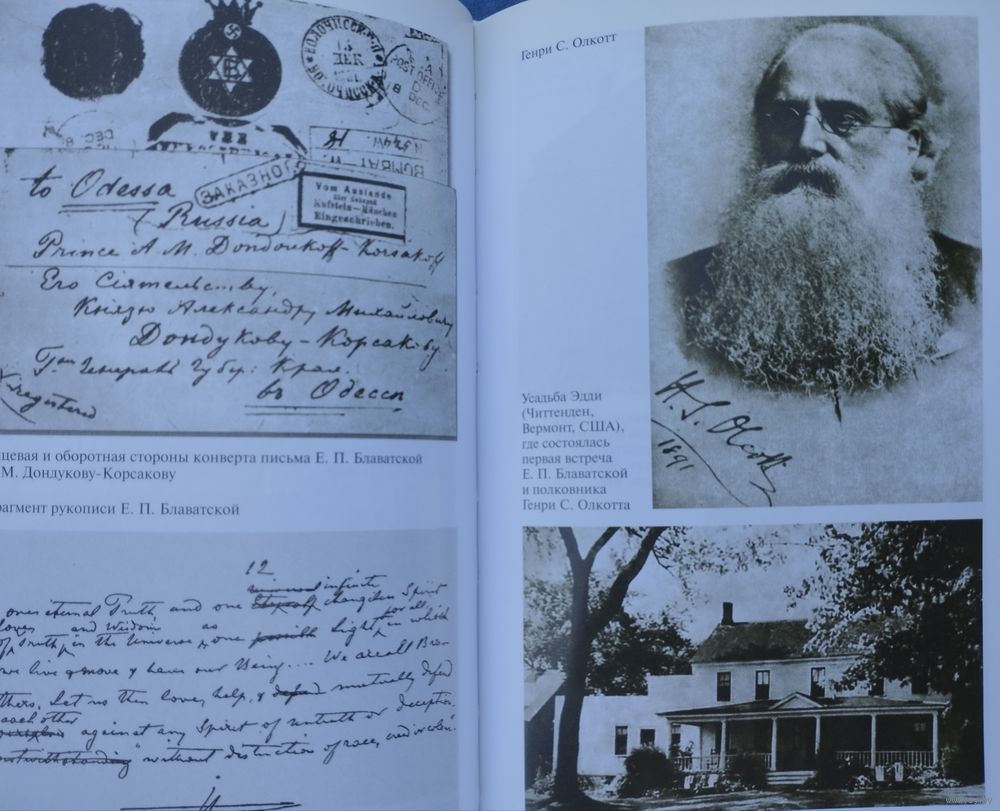 ВОЛОЧИССК
13
ДЕК
POST OFFICE
DEC.
BOMBAY
to Odessa
ЗАКАЗНОЕ
Vom Auslande
über Bahnpost
Kufstein–München
Eingeschrieben.
(Russia)
Prince A. M. Dondoukoff-Korsakoff
Его Сіятельству,
Князю Александру Михайловичу
Дондукову-Корсакову
Генералъ Губер: Края.
въ Одессы
registered
цевая и оборотная стороны конверта письма Е. П. Блаватской
М. Дондукову-Корсакову
рагмент рукописи Е. П. Блаватской
12.
infinite
ones eternal Truth, and one changeless Spirit
of Truth in the Universe, one Light in which
we live & move & have our Being.... We are all Bro-
thers. Let us then love, help, & mutually defend
each other against any Spirit of untruth or deception
notwithstanding "without distinction of race, creed or color."
Генри С. Олкотт
H. S. Olcott
1891
Усадьба Эдди
(Читтенден,
Вермонт, США),
где состоялась
первая встреча
Е. П. Блаватской
и полковника
Генри С. Олкотта